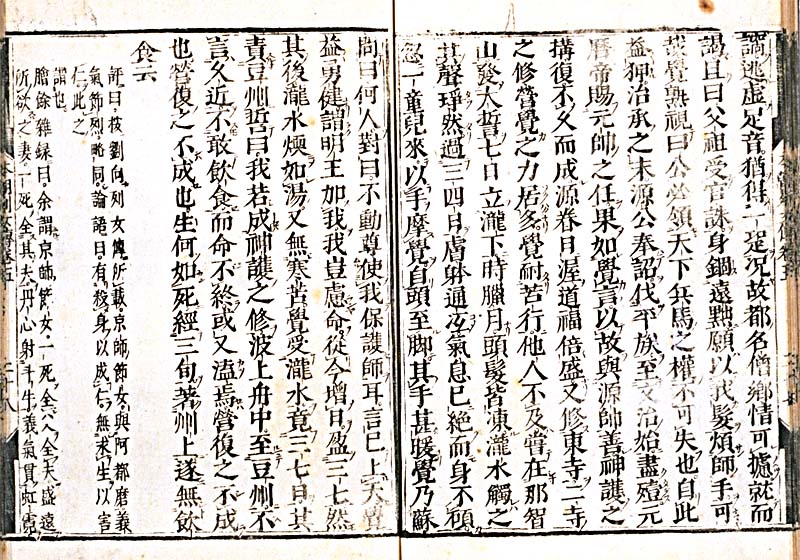 逃虛足音猶得一定况故都名僧鄉情可據就而
謁且曰父祖受官誅身錮遠黜願以我髮煩師手可
哉覺熟視曰公必領天下兵馬之權不可失也自此
益狎治承之末源公奉詔伐平族至文治始盡殪元
曆帝賜元帥之任果如覺言以故與源帥善神護之
搆復不久而成源眷日渥道福倍盛又修東寺二寺
之修營覺之力居多覺耐苦行他人不及嘗在那智
山發大誓七日立瀧下時臘月頭髮皆凍瀧水觸之
其聲琤然過三四日膚躰通氣息已絕而身不傾
忽一童兒來以手摩覺自頭至脚其手甚暖覺乃蘇
問曰何人對曰不動尊使我保護師耳言已上天覺
益勇健謂明王加我我豈慮命從今增日盈三七然
其後瀧水煥如湯又無寒苦覺受瀧水竟三七日其
責豆州誓曰我若成神護之修波上舟中至豆州不
言久近不敢飲食而命不終或又溘焉營復之不成
也營復之不成也生何如死經三旬著州上遂無飲
食云
評曰按劉向列女傳所載京師節女與阿都磨義
氣節烈略同論語曰有殺身以成仁無求生以害
仁此之
謂也
膽餘雜録曰余謂京師節女一死全父全夫盛遠
所欲之妻一死全其夫丹心射斗牛義氣貫虹霓